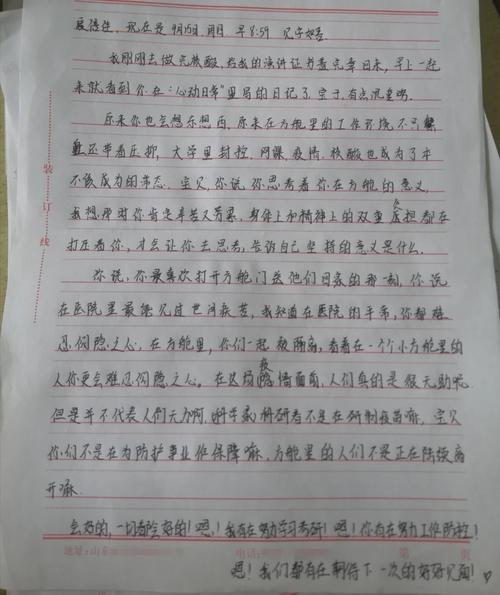 现在是9月15日,周日 早8:59 见字如面
我刚刚去做完核酸,当我的演讲证书盖完章回来,早上一起
来就看到你在:“心动日常”里写的日记了,宝子,有点沉重呜.
原来你也会想东想西,原来在方舱里的工作环境不只
还带着压抑,大学里封控,网课,疫情,核酸也成为了本
不该成为的常态.宝贝,你说你思考着你在方舱的意义,
我想那时你肯定辛苦又劳累,身体上和精神上的双重负担都在
打压着你,才会让你去思考,告诉自己坚持的意义是什么.
你说,你最喜欢打开方舱门送他们回家的那一刻,你说
在医院里最能见过世间疾苦,我知道在医院的平常,你都难
忍恻隐之心,在方舱里,你们一起被隔离,看着在一个个小方舱里的
人你更会难忍恻隐之心。在这场疫情面前,人们真的是很无助呢
但是并不代表人们无力啊,科学家,科研者不是在研制疫苗嘛,宝贝
你们不是在为防护事业作保障嘛,方舱里的人们不是正在陆续离
开嘛.
会好的,一切都会好的!嗯!我有在努力学习考研!嗯!你有在努力工作防控!
地址:山东 电话: 第 页
嗯!我们都有在期待下一次的好好见面!
装
订
线